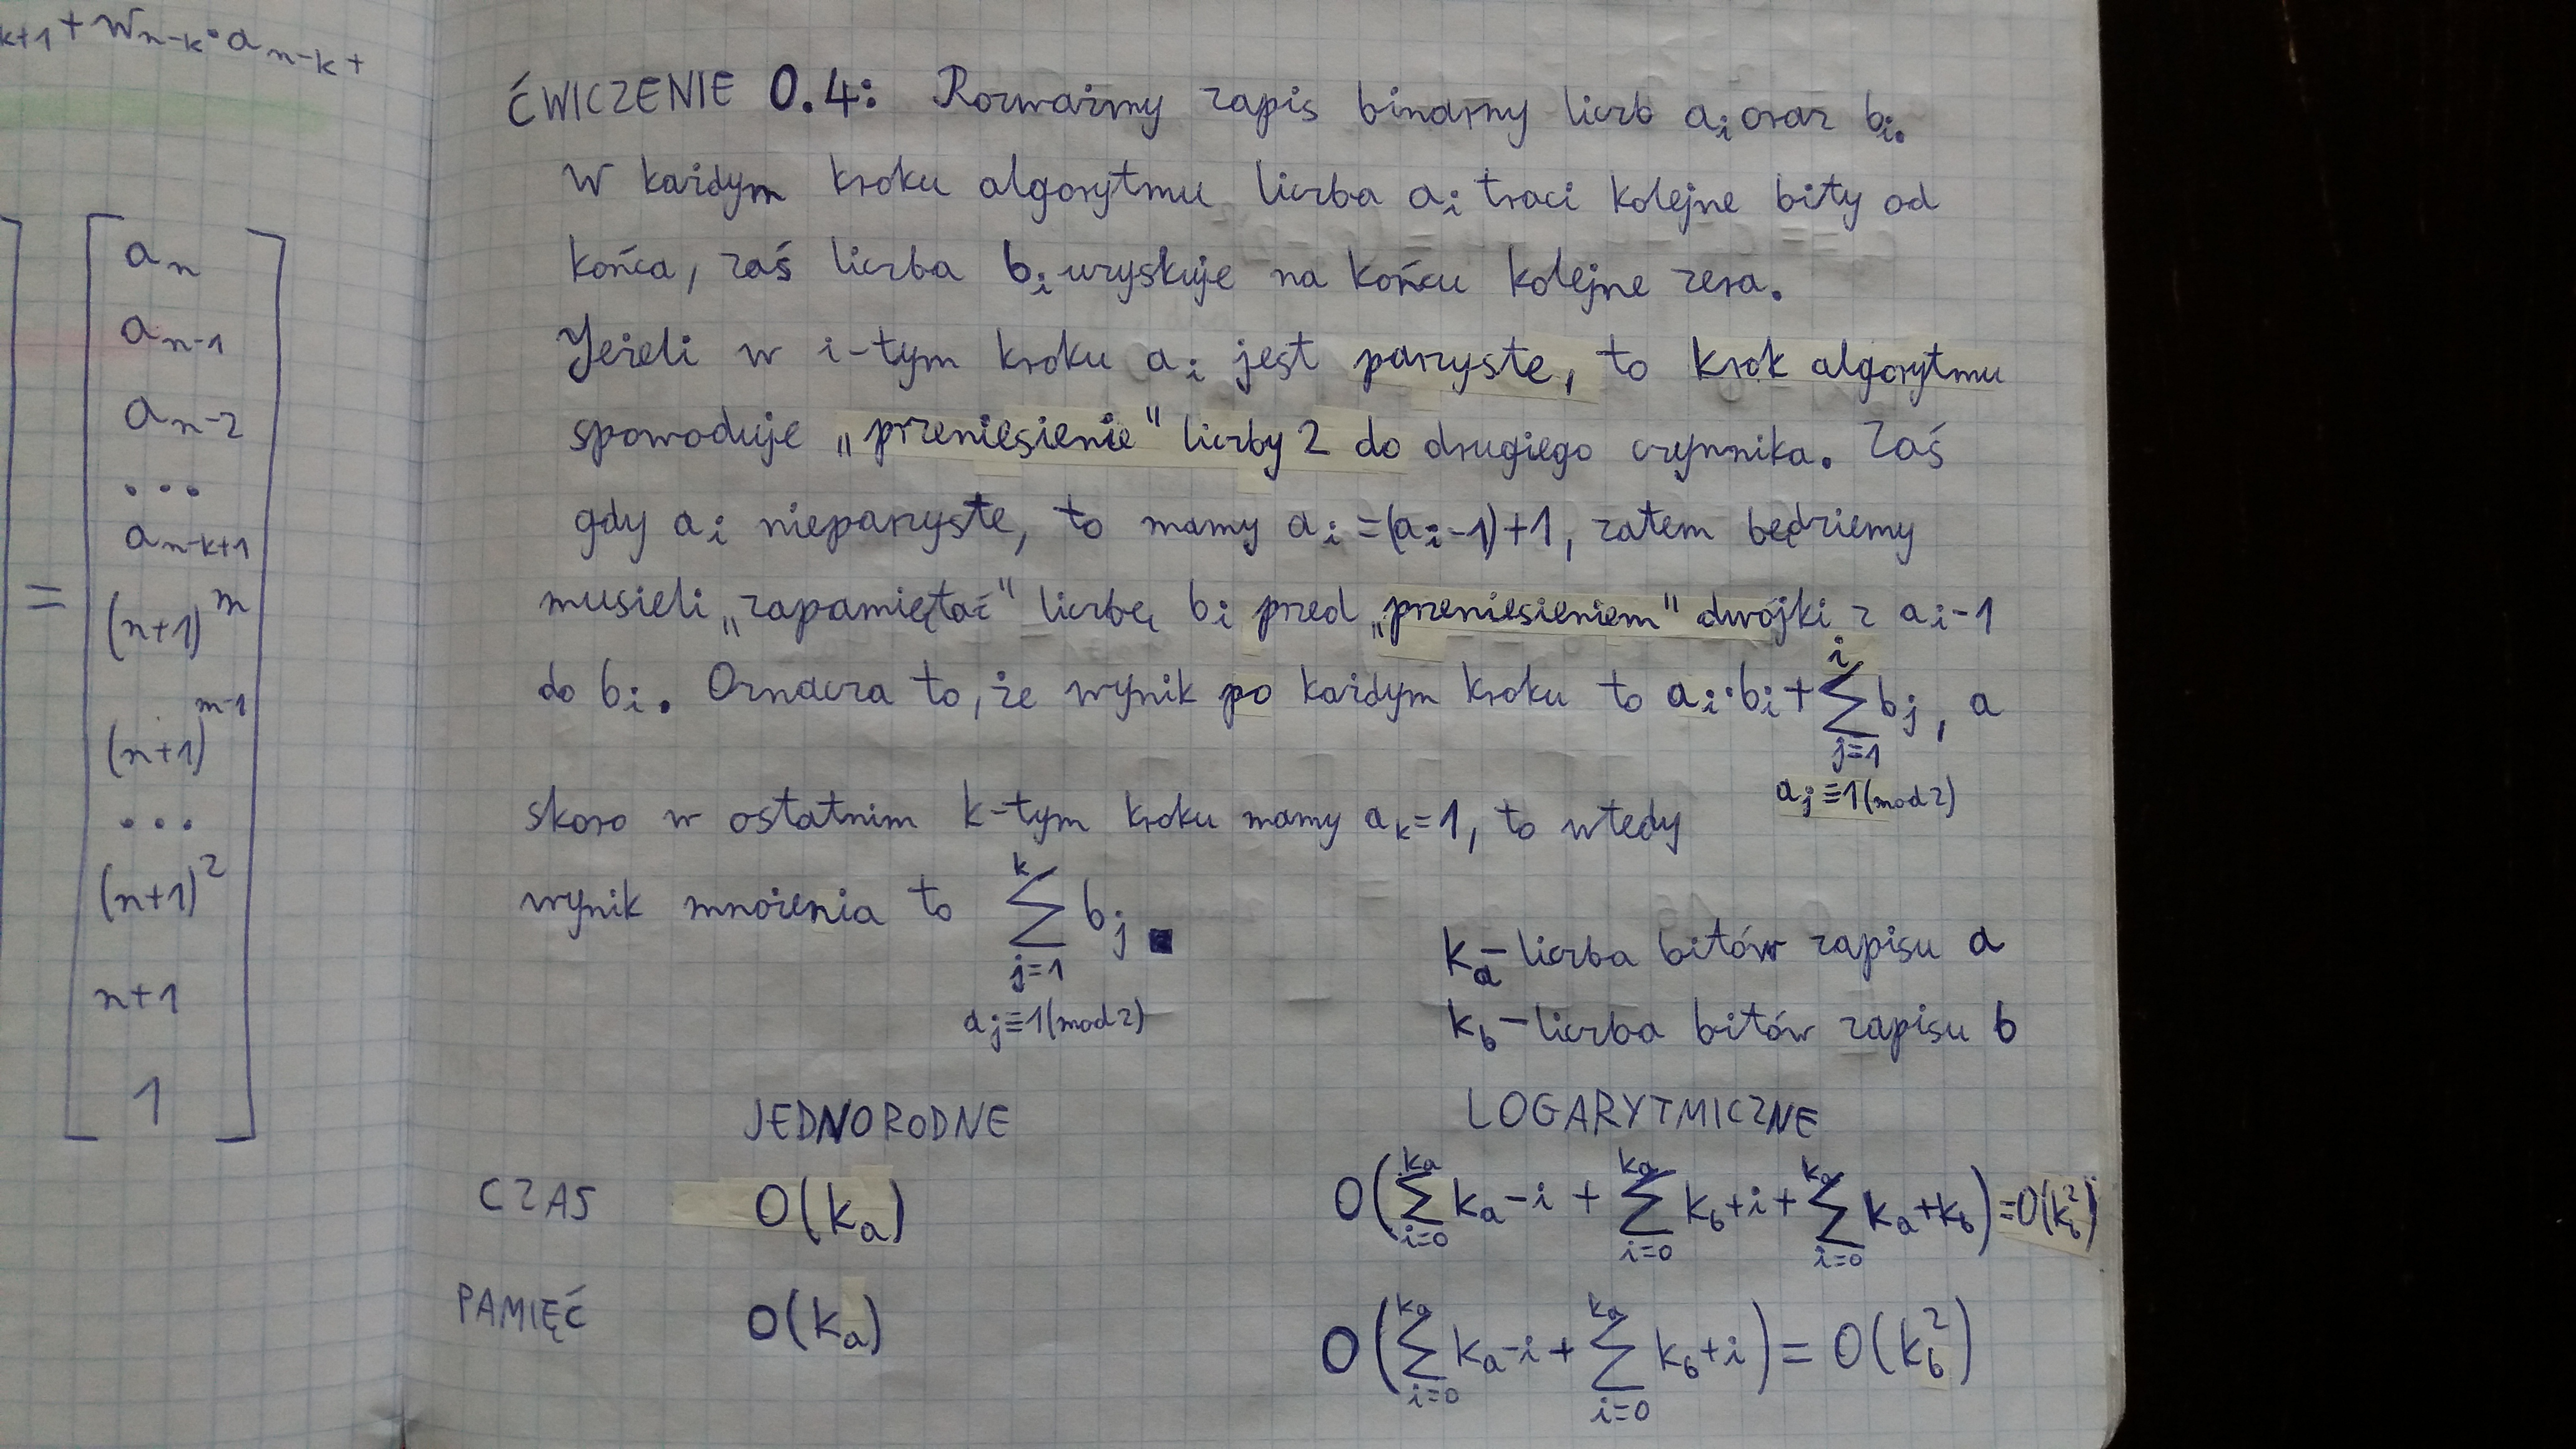 k+1 + w_{n-k}·a_{n-k} +
= [
a_n
a_{n-1}
a_{n-2}
...
a_{n-k+1}
(n+1)^m
(n+1)^{m-1}
...
(n+1)^2
n+1
1
]
ĆWICZENIE 0.4: Rozważmy zapis binarny liczb a_i oraz b_i.
W każdym kroku algorytmu liczba a_i traci kolejne bity od
końca, zaś liczba b_i uzyskuje na końcu kolejne zera.
Jeżeli w i-tym kroku a_i jest parzyste, to krok algorytmu
spowoduje „przeniesienie" liczby 2 do drugiego czynnika. Zaś
gdy a_i nieparzyste, to mamy a_i=(a_i-1)+1, zatem będziemy
musieli „zapamiętać" liczbę b_i przed „przeniesieniem" dwójki z a_i-1
do b_i. Oznacza to, że wynik po każdym kroku to a_i·b_i+∑_{j=1, a_j≡1(mod 2)}^{i} b_j, a
skoro w ostatnim k-tym kroku mamy a_k=1, to wtedy
wynik mnożenia to ∑_{j=1, a_j≡1(mod 2)}^{k} b_j ■
k_a - liczba bitów zapisu a
k_b - liczba bitów zapisu b
JEDNORODNE LOGARYTMICZNE
CZAS O(k_a) O(∑_{i=0}^{k_a} k_a-i + ∑_{i=0}^{k_a} k_b+i + ∑_{i=0}^{k_a} k_a+k_b)=O(k_b^2)
PAMIĘĆ O(k_a) O(∑_{i=0}^{k_a} k_a-i + ∑_{i=0}^{k_a} k_b+i) = O(k_b^2)